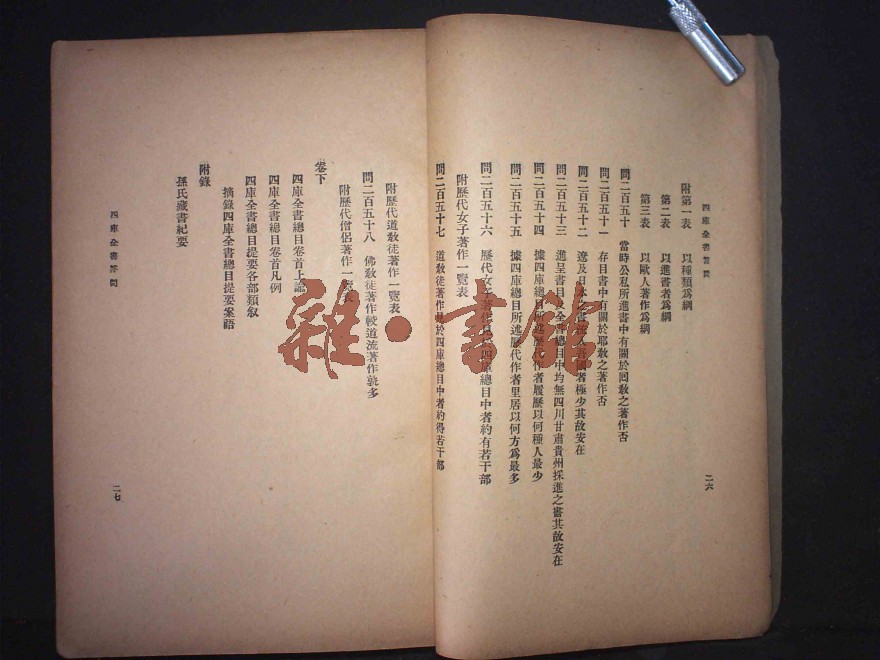 四庫全書答問
附第一表　以種類爲綱
第二表　以進書者爲綱
第三表　以歐人著作爲綱
問二百五十　當時公私所進書中有關於回敎之著作否
問二百五十一　存目書中有關於耶敎之著作否
問二百五十二　遼及日本之書流入吾國者極少其故安在
問二百五十三　進呈書目及全書總目中均無四川甘肅貴州採進之書其故安在
問二百五十四　據四庫總目所述歷代作者履歷以何種人最少
問二百五十五　據四庫總目所述歷代作者里居以何方爲最多
問二百五十六　歷代女子著作見於四庫總目中者約有若干部
附歷代女子著作一覽表
問二百五十七　道敎徒著作見於四庫總目中者約得若干部
二六
附歷代道敎徒著作一覽表
問二百五十八　佛敎徒著作較道流著作孰多
附歷代僧侶著作一覽表
卷下
四庫全書總目卷首上諭
四庫全書總目卷首凡例
四庫全書總目提要各部類敘
摘錄四庫全書總目提要案語
附錄
孫氏藏書紀要
四庫全書答問
二七
雜·書館